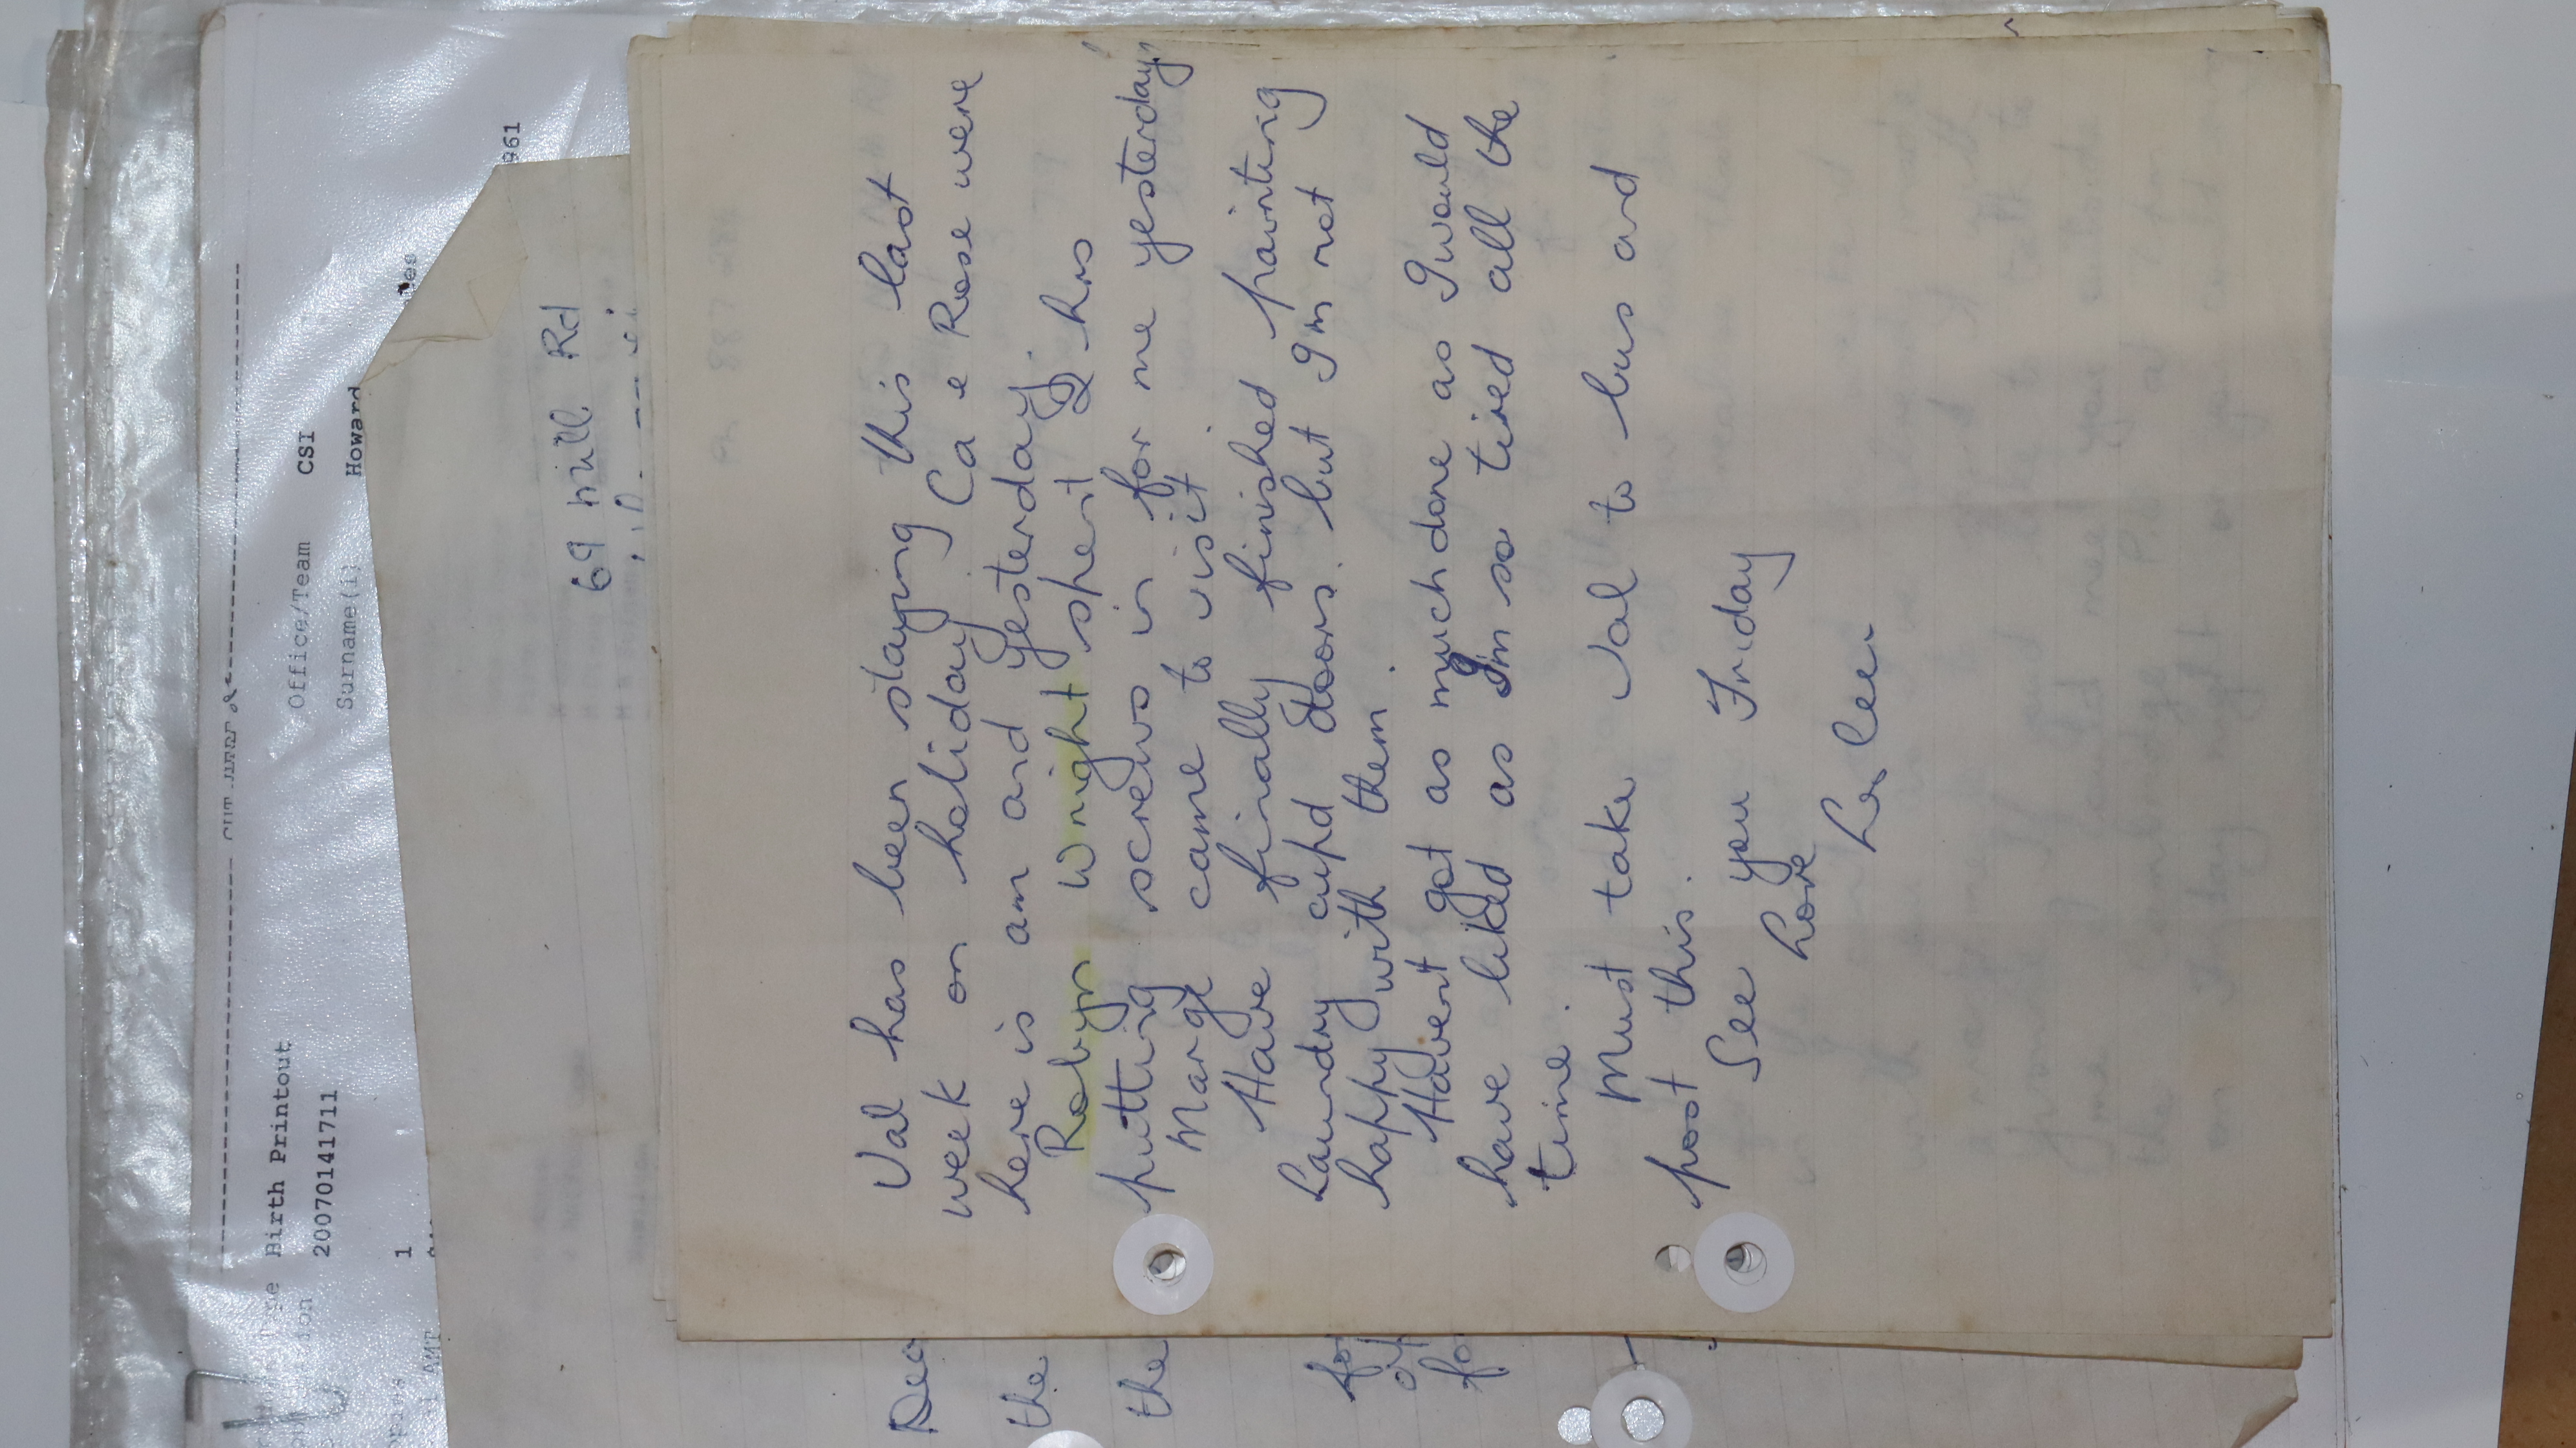 CUT HERE
Birth Printout
Office/Team CSI
20070141711
Surname(1) Howard
1
961
69 Mill Rd
Val has been staying this last
week on holiday Ca e Rose were
here is am and yesterday.
Robyn Wright spent 2 hrs
putting screws in for me yesterday
Marge came to visit.
Have finally finished painting
Laundry cupd doors. but I'm not
happy with them.
Havent got as much done as I would
have liked as I'm so tired all the
time.
Must take Val to bus and
post this.
See you Friday
Love
Dea
the
the
fo
fo